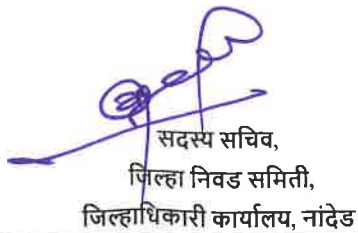 सदस्य सचिव,
जिल्हा निवड समिती,
जिल्हाधिकारी कार्यालय, नांदेड